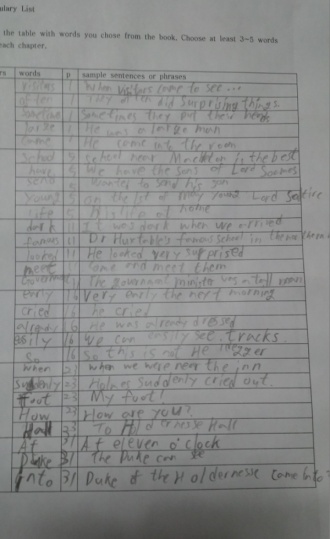 ulary List
the table with words you chose from the book. Choose at least 3~5 words
each chapter.
rs words p sample sentences or phrases
visitors 1 when visitors come to see...
often 1 They often did surprising things
sometimes 1 Sometimes they put their
large 1 He was a large man
came 1 He came into the room
school 5 school near is the best
have 5 We have the sons of Lord
send 5 wanted to send his son
young 5 Lord
life 5 His life at home
dark 11 It was dark when we arrived
famous 11 Dr Huxtable's famous school in the north
looked 11 He looked very surprised
meet 11 come and meet them
The government minister was a tall man
early 16 Very early the next morning
cried 16 He cried
already 16 He was already dressed
16 We can easily see tracks
So 16 So this is not
when 23 when we were near the inn
suddenly 23 Holmes suddenly cried out.
foot 23 My foot!
How 27 How are you?
Hall To Holdernesse Hall
At 31 At eleven o'clock
Duke 31 the Duke can
into 31 Duke of the Holdernesse came into